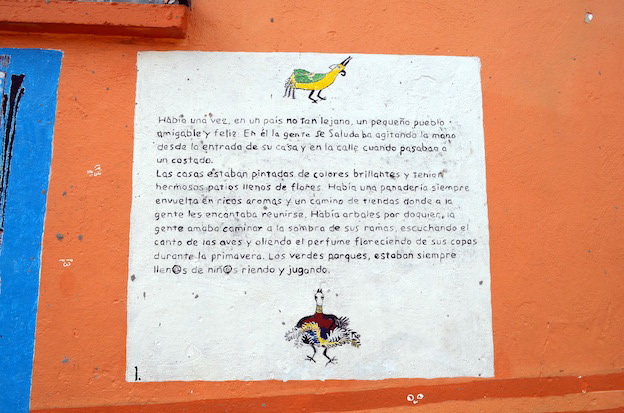 Había una vez, en un país no tan lejano, un pequeño pueblo
amigable y feliz. En él la gente se saludaba agitando la mano
desde la entrada de su casa y en la calle cuando pasaban a
un costado.
Las casas estaban pintadas de colores brillantes y tenían
hermosos patios llenos de flores. Había una panadería siempre
envuelta en ricos aromas y un camino de tiendas donde a la
gente les encantaba reunirse. Había arboles por doquier, la
gente amaba caminar a la sombra de sus ramas, escuchando el
canto de las aves y oliendo el perfume floreciendo de sus copas
durante la primavera. Los verdes parques, estaban siempre
llen@s de niñ@s riendo y jugando.
1.